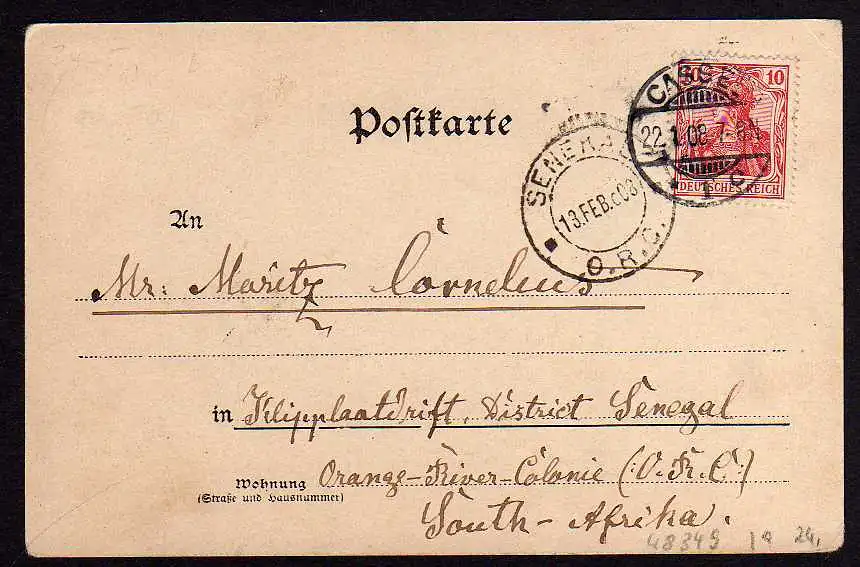 10 10
DEUTSCHES REICH
CASSEL
22.1.08 7-8N
1 c
Postkarte
SENEKAL
13.FEB.08
O.R.C.
An
Mr: Maritz Cornelius
in Klipplaatdrift, District Senegal
Wohnung Orange-River-Colonie (O.R.C.)
(Straße und Hausnummer)
South-Afrika.
48349 24,